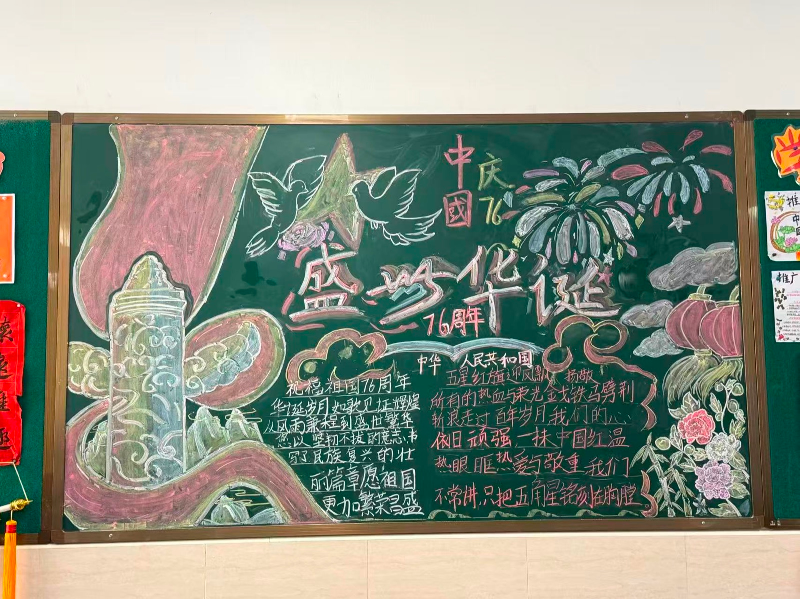 中國
庆76
盛世华诞
76周年
中华人民共和国
祝福祖国76周年
华诞岁月如歌见证辉煌
从风雨兼程到盛世繁华
您以坚韧不拔的意志书
写了民族复兴的壮
丽篇章愿祖国
更加繁荣昌盛
五星红旗迎风飘扬
所有的热血与荣光金戈铁马劈荆
斩浪走过百年岁月我们的心
依旧顽强一抹中国红温
热眼眶热爱与敬重我们
不常讲,只把五角星铭刻在胸膛
推广